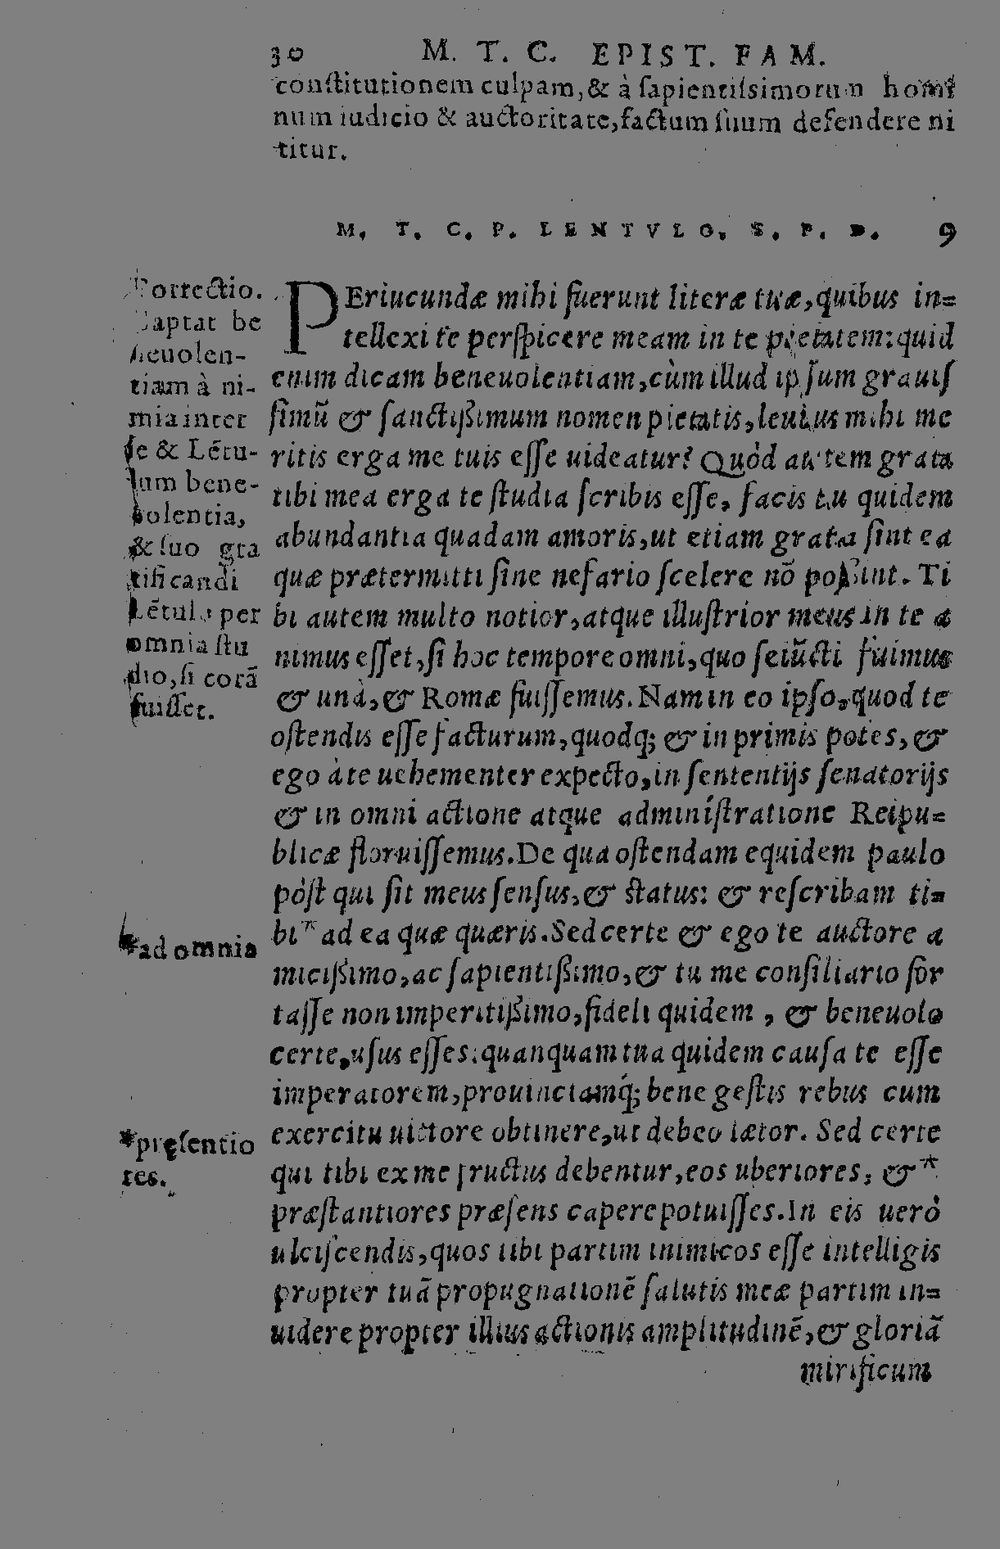 30 M. T. C. EPIST. FAM.
constitutionem culpam, & à sapientissimorum homi
num iudicio & auctoritate, factum suum defendere ni
titur.
M. T. C. P. LENTVLO, S. P. D. 9
Correctio.
Captat be
neuolen-
tiam à ni-
mia inter
se & Lẽtu-
lum bene-
uolentia,
& suo gra
tificandi
Lẽtulo per
omnia stu
dio, si corã
fuisset.
PEriucundæ mihi fuerunt literæ tuæ, quibus in=
tellexi te perspicere meam in te pietatem: quid
enim dicam beneuolentiam, cùm illud ipsum grauis
simũ & sanctißimum nomen pietatis, leuius mihi me
ritis erga me tuis esse uideatur? Quòd autem grata
tibi mea erga te studia scribis esse, facis tu quidem
abundantia quadam amoris, ut etiam grata sint ea
quæ prætermitti sine nefario scelere nõ poßint. Ti
bi autem multo notior, atque illustrior meus in te a
nimus esset, si hoc tempore omni, quo seiũcti fuimus
& unà, & Romæ fuissemus. Nam in eo ipso, quod te
ostendis esse facturum, quodq; & in primis potes, &
ego à te uehementer expecto, in sententijs senatorijs
& in omni actione atque administratione Reipu=
blicæ floruissemus. De qua ostendam equidem paulo
pòst qui sit meus sensus, & status: & rescribam ti=
bi * ad ea quæ quæris. Sed certe & ego te auctore a
micißimo, ac sapientißimo, & tu me consiliario for
tasse non imperitißimo, fideli quidem , & beneuolo
certe, usus esses. quanquam tua quidem causa te esse
imperatorem, prouinciamq́; bene gestis rebus cum
exercitu uictore obtinere, ut debeo lætor. Sed certe
qui tibi ex me fructus debentur, eos uberiores, & *
præstantiores præsens capere potuisses. In eis uerò
ulciscendis, quos tibi partim inimicos esse intelligis
propter tuã propugnationẽ salutis meæ partim in=
uidere propter illius actionis amplitudinẽ, & gloriã
mirificum
*ad omnia
*pręsentio
res.